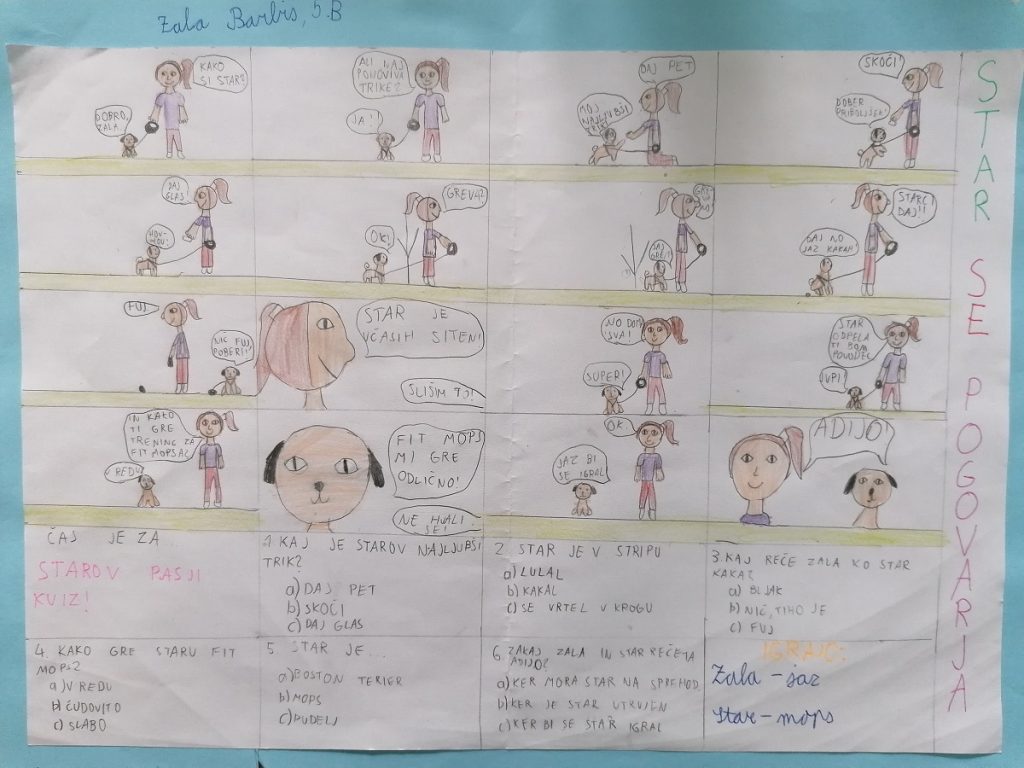 Zala Barbis, 5.B
STAR SE POGOVARJA
KAKO
SI STAR?
DOBRO,
ZALA.
ALI NAJ
PONOVIVA
TRIKE?
JA!
DAJ PET
MOJ
NAJLJUBŠI
SKOČI!
DOBER
PRIBOLJŠEK!
DAJ
GLAS!
HOV-
HOV!
GREVA?
OK!
STARČI
DAJ!!
DAJ NO
JAZ KAKAM!
FUJ
NIČ FUJ
POBERI!
STAR JE
VČASIH SITEN!
SLIŠIM TO!
NO DOMA
SVA!
SUPER!
STAR
ODPELA
TI BOM
POVODEC
JUPI!
IN KAKO
TI GRE
TRENING ZA
FIT MOPSA?
V REDU
FIT MOPS
MI GRE
ODLIČNO!
NE HVALI
SE!
OK.
JAZ BI
SE IGRAL
ADIJO!
ČAJ JE ZA...
STAROV PASJI
KVIZ!
1. KAJ JE STAROV NAJLJUBŠI
TRIK?
a) DAJ PET
b) SKOČI
c) DAJ GLAS
2. STAR JE V STRIPU
a) LULAL
b) KAKAL
c) SE VRTEL V KROGU
3. KAJ REČE ZALA KO STAR
KAKA?
a) BLJAK
b) NIČ, TIHO JE
c) FUJ
4. KAKO GRE STARU FIT
MOPS?
a) V REDU
b) ČUDOVITO
c) SLABO
5 STAR JE...
a) BOSTON TERIER
b) MOPS
c) PUDELJ
6. ZAKAJ ZALA IN STAR REČETA
ADIJO?
a) KER MORA STAR NA SPREHOD
b) KER JE STAR UTRUJEN
c) KER BI SE STAR IGRAL
IGRAJO:
Zala - jaz
Star - mops